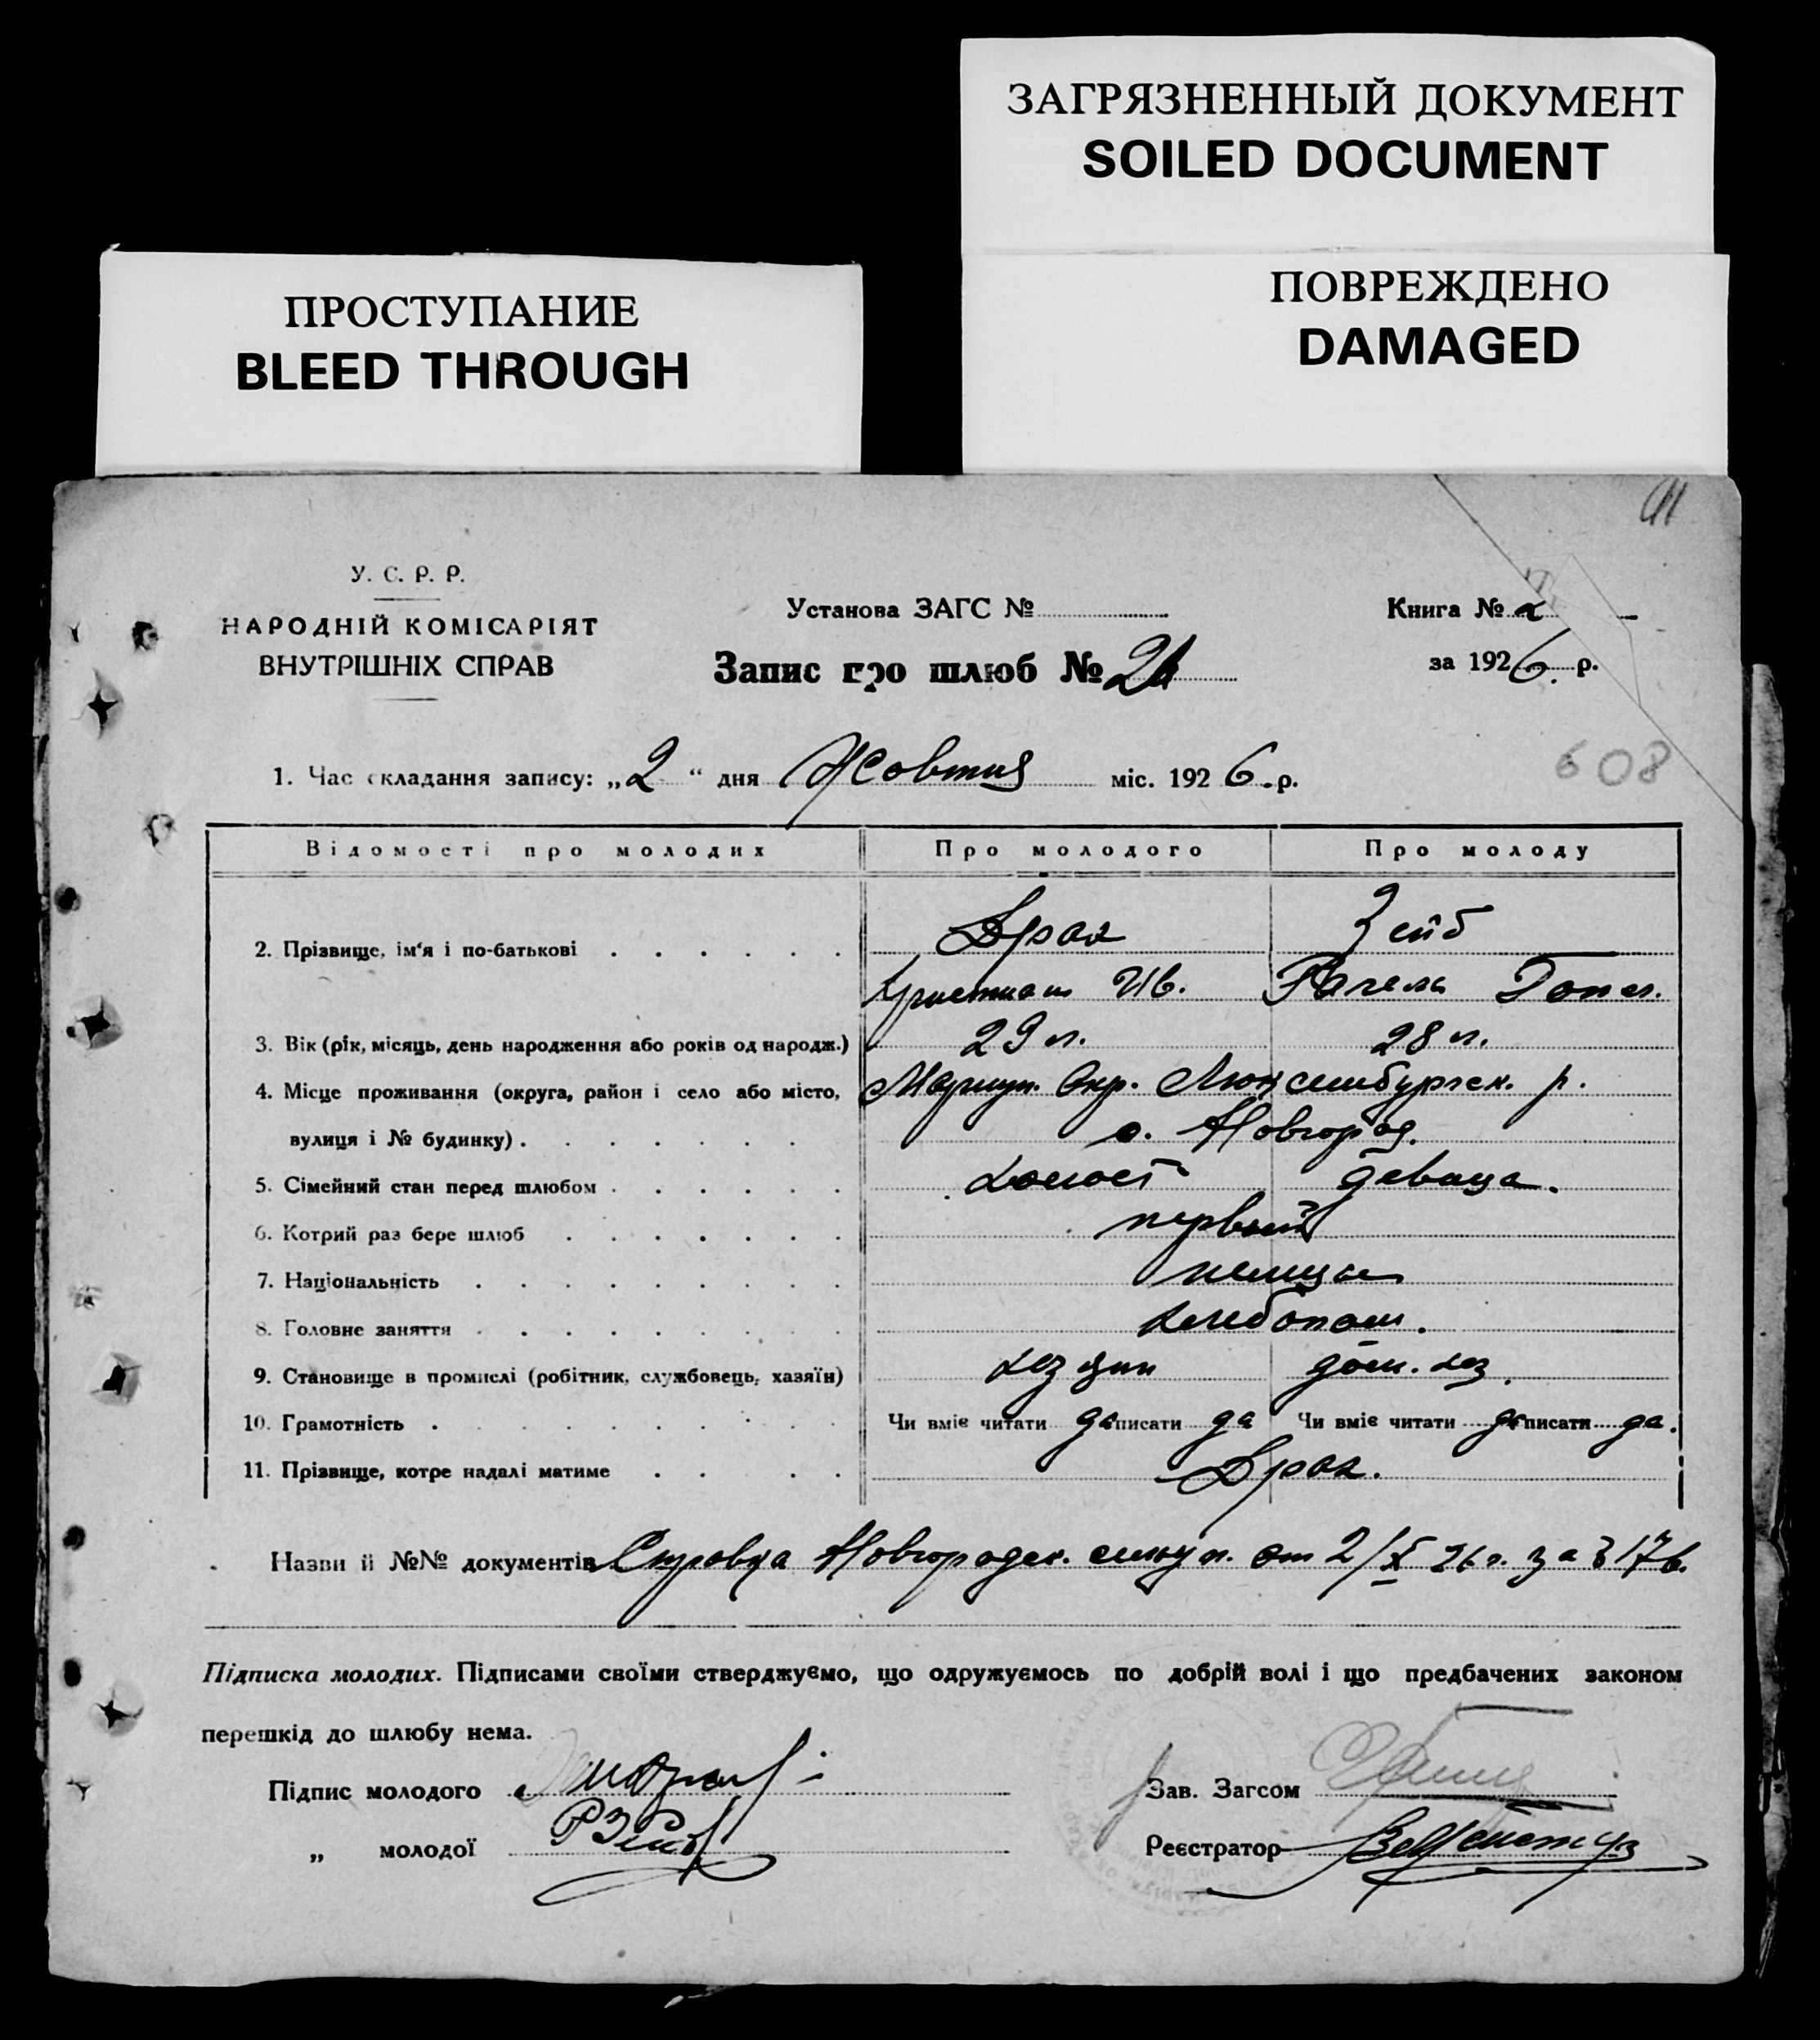 ЗАГРЯЗНЕННЫЙ ДОКУМЕНТ
SOILED DOCUMENT
ПРОСТУПАНИЕ
BLEED THROUGH
ПОВРЕЖДЕНО
DAMAGED
У. С. Р. Р.
НАРОДНІЙ КОМІСАРІЯТ
ВНУТРІШНІХ СПРАВ
Установа ЗАГС №
Книга № 2
Запис про шлюб № 21
за 1926 р.
608
1. Час складання запису: „2“ дня Жовтня міс. 1926 р.
Відомості про молодих Про молодого Про молоду
2. Прізвище, ім'я і по-батькові Драх Зейб
Християн Ив. Рахель Готл.
3. Вік (рік, місяць, день народження або років од народж.) 29 л. 28 л.
4. Місце проживання (округа, район і село або місто, Мариуп. Окр. Люксембургск. р.
вулиця і № будинку) с. Новгород.
5. Сімейний стан перед шлюбом холост девица.
6. Котрий раз бере шлюб первый
7. Національність немцы
8. Головне заняття хлебопаш.
9. Становище в промислі (робітник, службовець, хазяїн) хозяин дом. хоз.
10. Грамотність Чи вміє читати да писати да Чи вміє читати да писати да.
11. Прізвище, котре надалі матиме Драх.
Назви й №№ документів Справка Новгородск. от 2/X 26 г. за 176.
Підписка молодих. Підписами своїми стверджуємо, що одружуємось по добрій волі і що предбачених законом
перешкід до шлюбу нема.
Підпис молодого
Зав. Загсом
„ молодої
Реєстратор